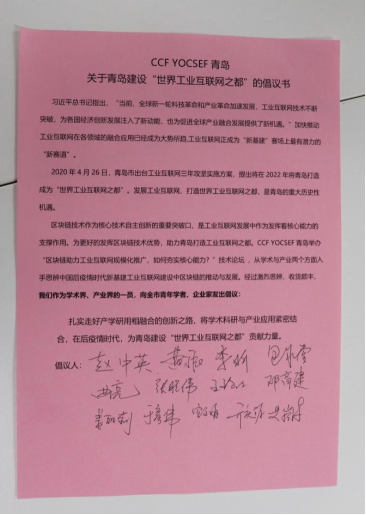 CCF YOCSEF 青岛
关于青岛建设“世界工业互联网之都”的倡议书
习近平总书记指出，“当前，全球新一轮科技革命和产业革命加速发展，工业互联网技术不断
突破，为各国经济创新发展注入了新动能，也为促进全球产业融合发展提供了新机遇。”加快推动
工业互联网在各领域的融合应用已经成为大势所趋,工业互联网正成为“新基建”赛场上最有潜力的
“新赛道”。
2020 年 4 月 26 日，青岛市出台工业互联网三年攻坚实施方案，提出将在 2022 年将青岛打造
成为“世界工业互联网之都”。发展工业互联网，打造世界工业互联网之都，是青岛的重大历史性
机遇。
区块链技术作为核心技术自主创新的重要突破口，是工业互联网发展中作为发挥着核心能力的
支撑作用。为更好的发挥区块链技术优势，助力青岛打造工业互联网之都。CCF YOCSEF 青岛举办
“区块链助力工业互联网规模化推广，如何夯实核心能力？”技术论坛，从学术与产业两个方面入
手思辨中国后疫情时代新基建工业互联网建设中区块链的推动与发展。经过激烈思辨，收货颇丰，
我们作为学术界、产业界的一员，向全市青年学者，企业家发出倡议：
扎实走好产学研用相融合的创新之路，将学术科研与产业应用紧密结
合，在后疫情时代，为青岛建设“世界工业互联网之都”贡献力量。
倡议人：赵中英